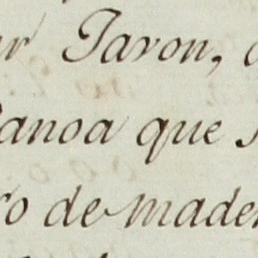 er Javon,
Canoa que
ro de made